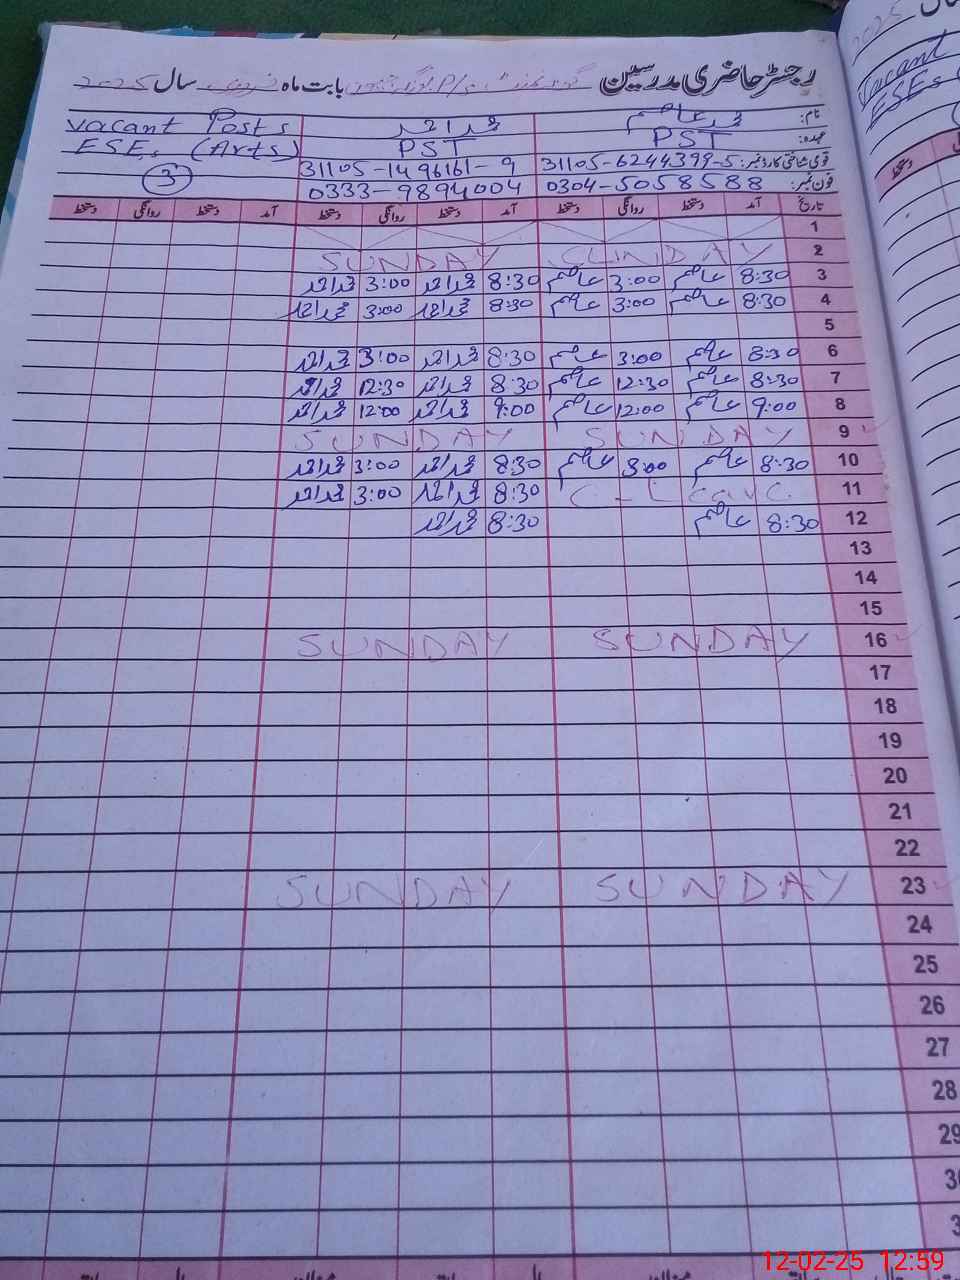 رجسٹر حاضری مدرسین گورنمنٹ P/S بابت ماہ فروری سال 2025
نام: محمد عاصم محمد احمد Vacant Posts
عہدہ: PST PST ESEs (Arts)
قومی شناختی کارڈ نمبر: 31105-6244399-5 31105-1496161-9 3
فون نمبر: 0304-5058588 0333-9894004
تاریخ آمد دستخط روانگی دستخط آمد دستخط روانگی دستخط آمد دستخط روانگی دستخط
1
2 SUNDAY SUNDAY
3 8:30 عاصم 3:00 عاصم 8:30 محمد احمد 3:00 محمد احمد
4 8:30 عاصم 3:00 عاصم 8:30 محمد احمد 3:00 محمد احمد
5
6 8:30 عاصم 3:00 عاصم 8:30 محمد احمد 3:00 محمد احمد
7 8:30 عاصم 12:30 عاصم 8:30 محمد احمد 12:30 محمد احمد
8 9:00 عاصم 12:00 عاصم 9:00 محمد احمد 12:00 محمد احمد
9 SUNDAY SUNDAY
10 8:30 عاصم 3:00 عاصم 8:30 محمد احمد 3:00 محمد احمد
11 C-Leave 8:30 محمد احمد 3:00 محمد احمد
12 8:30 عاصم 8:30 محمد احمد
13
14
15
16 SUNDAY SUNDAY
17
18
19
20
21
22
23 SUNDAY SUNDAY
24
25
26
27
28
29
12-02-25 12:59